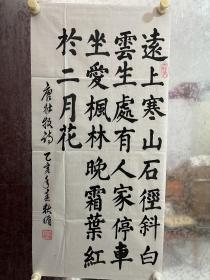 遠上寒山石徑斜白
雲生處有人家停車
坐愛楓林晚霜葉紅
於二月花
唐杜牧詩